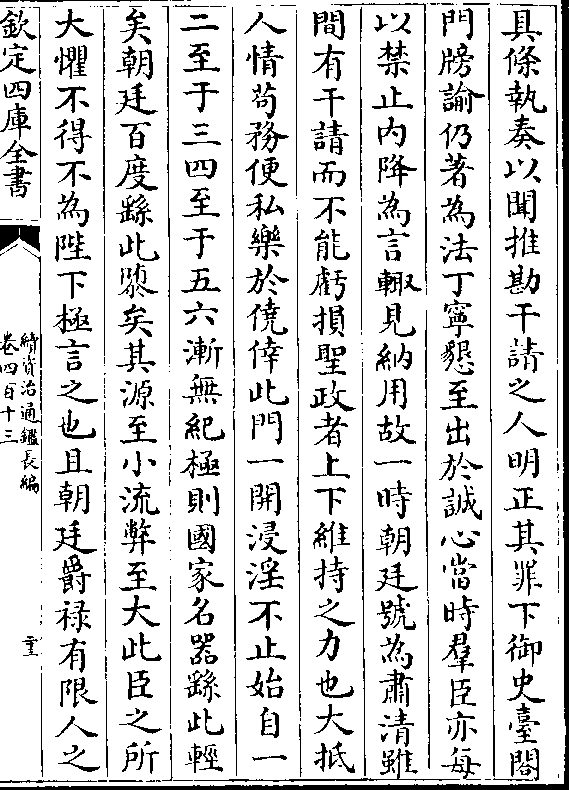 具條執奏以聞推勘干請之人明正其罪下御史臺閤
門牓諭仍著為法丁寧懇至出於誠心當時羣臣亦每
以禁止内降為言輙見納用故一時朝廷號為肅清雖
間有干請而不能虧損聖政者上下維持之力也大抵
人情苟務便私樂於僥倖此門一開浸淫不止始自一
二至于三四至于五六漸無紀極則國家名器繇此輕
矣朝廷百度繇此隳矣其源至小流弊至大此臣之所
大懼不得不為陛下極言之也且朝廷爵禄有限人之
欽定四庫全書
續資治通鑑長編
卷四百十三